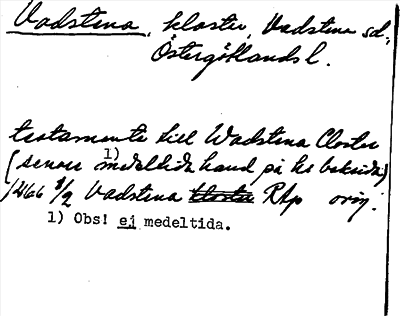 Vadstena, kloster, Vadstena sd.,
Östergötlands l.
testamente till Wadstena Closter
(senare 1) medeltida hand på hs baksida)
1466 8/2 Vadstena kloster RAp orig.
1) Obs! ej medeltida.